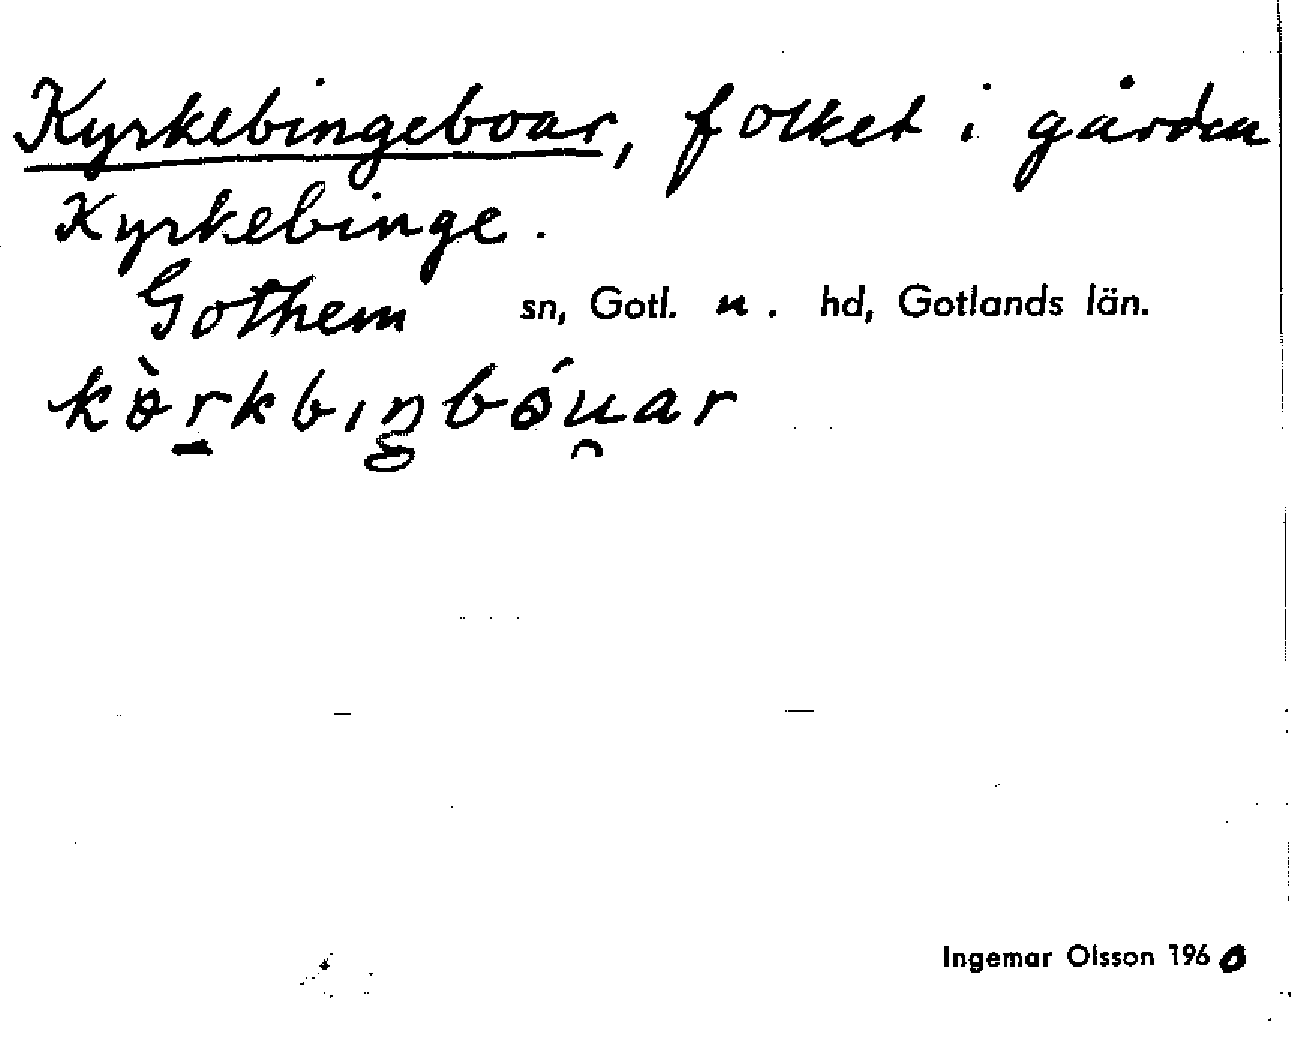 Kyrkebingeboar, folket i gården
Kyrkebinge.
Gothem sn, Gotl. n. hd, Gotlands län.
kɵ̀r̠kbıŋbóu̯ar
Ingemar Olsson 1960